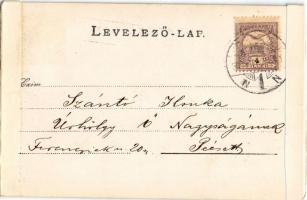 LEVELEZŐ-LAP.
Czím
Szántó Ilonka
Úrhölgy Ő Nagyságának
Ferencziek u 20.
Pécsett